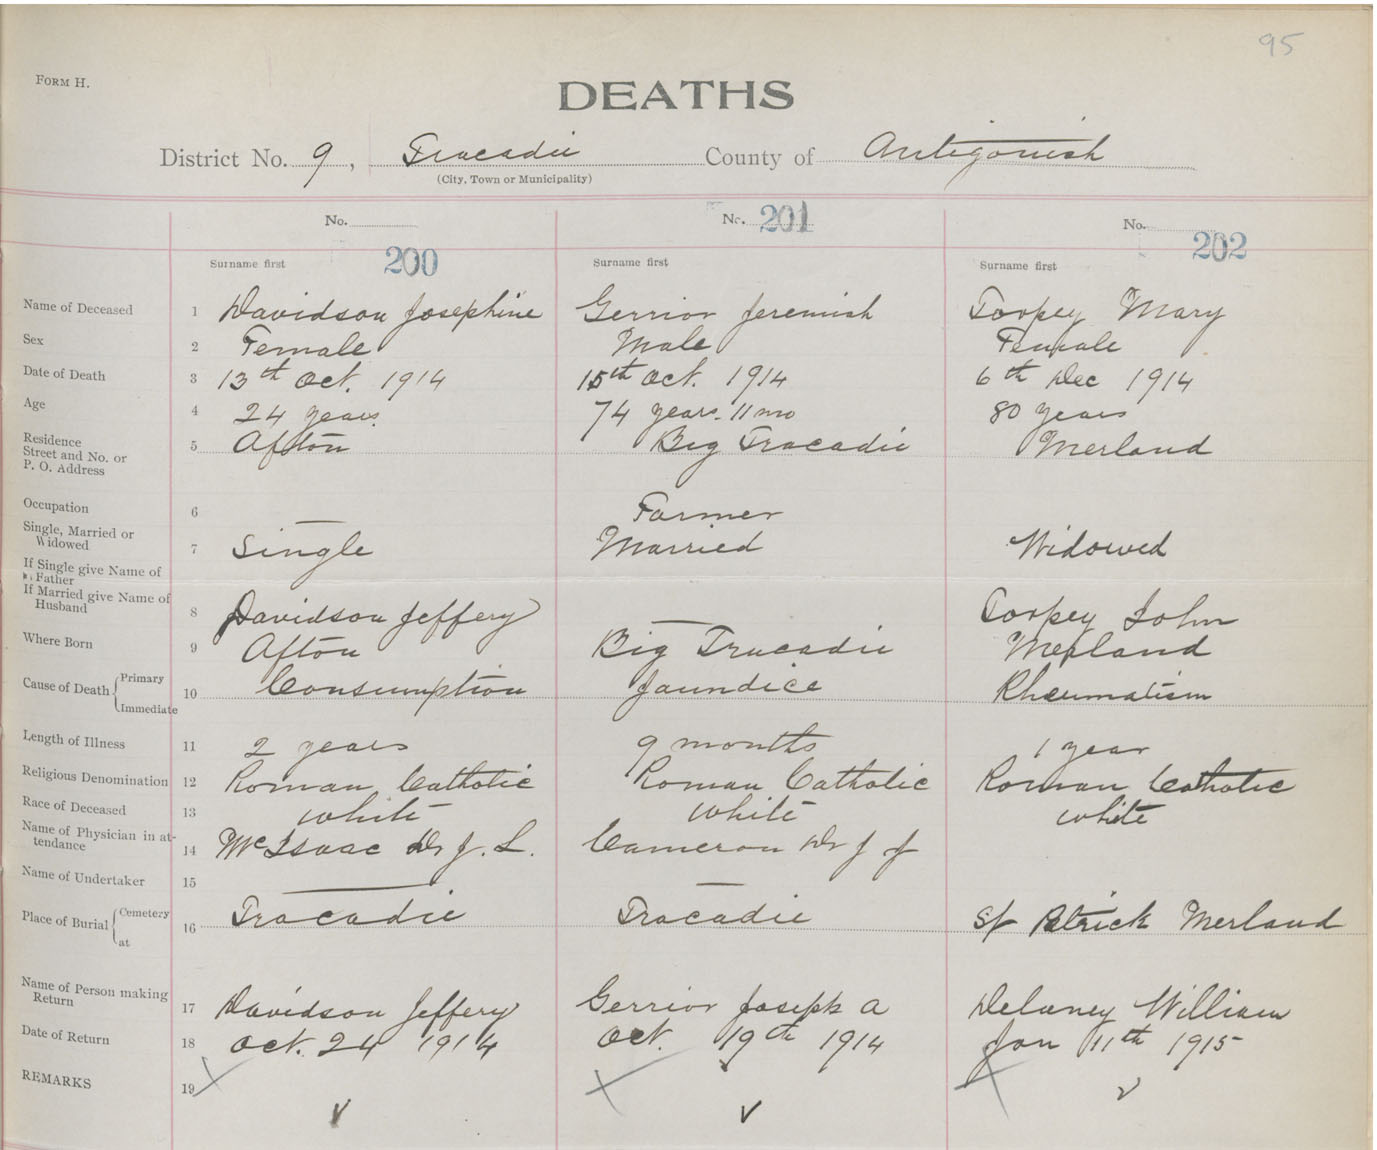 95
FORM H.
DEATHS
District No. 9, Tracadie County of Antigonish
(City, Town or Municipality)
No. No. 201 No.
Surname first 200 Surname first Surname first 202
Name of Deceased 1 Davidson Josephine Gerrior Jeremiah Torpey Mary
Sex 2 Female Male Female
Date of Death 3 13th Oct. 1914 15th Oct. 1914 6th Dec 1914
Age 4 24 years. 74 years. 11 mo 80 years
Residence Street and No. or P. O. Address 5 Afton Big Tracadie Merland
Occupation 6 — Farmer
Single, Married or Widowed 7 Single Married Widowed
If Single give Name of Father
If Married give Name of Husband 8 Davidson Jeffery — Torpey John
Where Born 9 Afton Big Tracadie Merland
Cause of Death { Primary Immediate 10 Consumption Jaundice Rheumatism
Length of Illness 11 2 years 9 months 1 year
Religious Denomination 12 Roman Catholic Roman Catholic Roman Catholic
Race of Deceased 13 white white white
Name of Physician in attendance 14 McIsaac Dr J. L. Cameron Dr J J
Name of Undertaker 15 — —
Place of Burial { Cemetery at 16 Tracadie Tracadie St Patrick Merland
Name of Person making Return 17 Davidson Jeffery Gerrior Joseph A Delaney William
Date of Return 18 Oct. 24 1914 Oct. 19th 1914 Jan 11th 1915
REMARKS 19